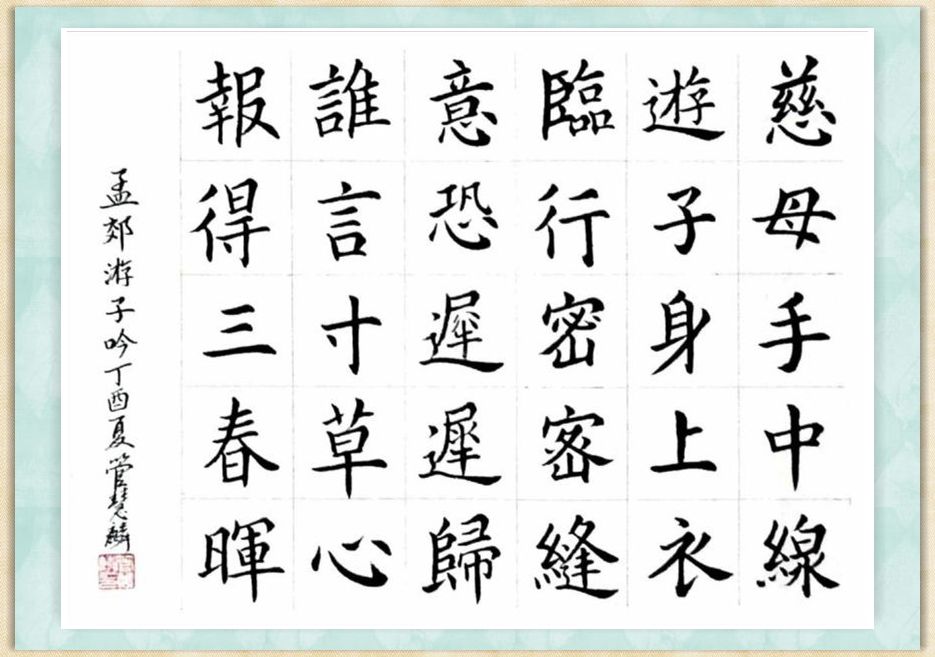 慈母手中線
遊子身上衣
臨行密密縫
意恐遲遲歸
誰言寸草心
報得三春暉
孟郊游子吟丁酉夏管慧麟